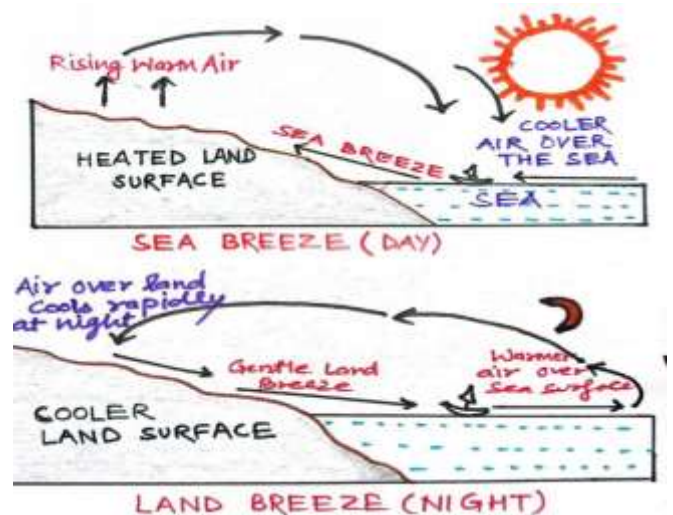 Rising Warm Air
COOLER
AIR OVER
THE SEA
SEA BREEZE
HEATED LAND
SURFACE
SEA
SEA BREEZE (DAY)
Air over land
cools rapidly
at night
Gentle Land
Breeze
Warmer
air over
Sea surface
COOLER
LAND SURFACE
LAND BREEZE (NIGHT)